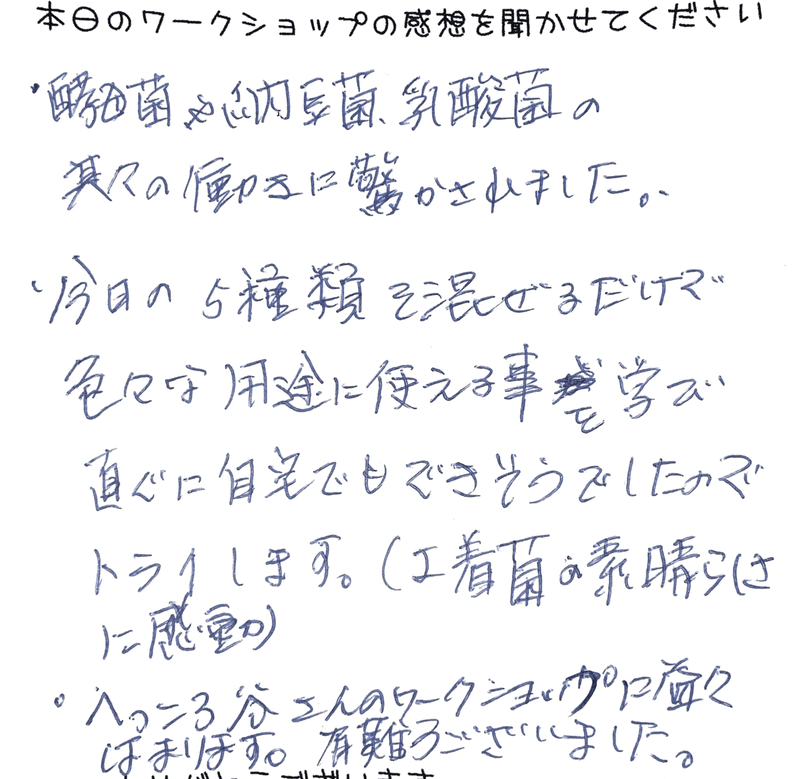 本日のワークショップの感想を聞かせてください
・酵母菌や納豆菌、乳酸菌の
其々の働きに驚かされました。
・今日の5種類を混ぜるだけで
色々な用途に使える事を学び
直ぐに自宅でもできそうでしたので
トライします。(工着菌の素晴らしさ
に感動)
・へっころ谷さんのワークショップに益々
はまります。有難うございました。